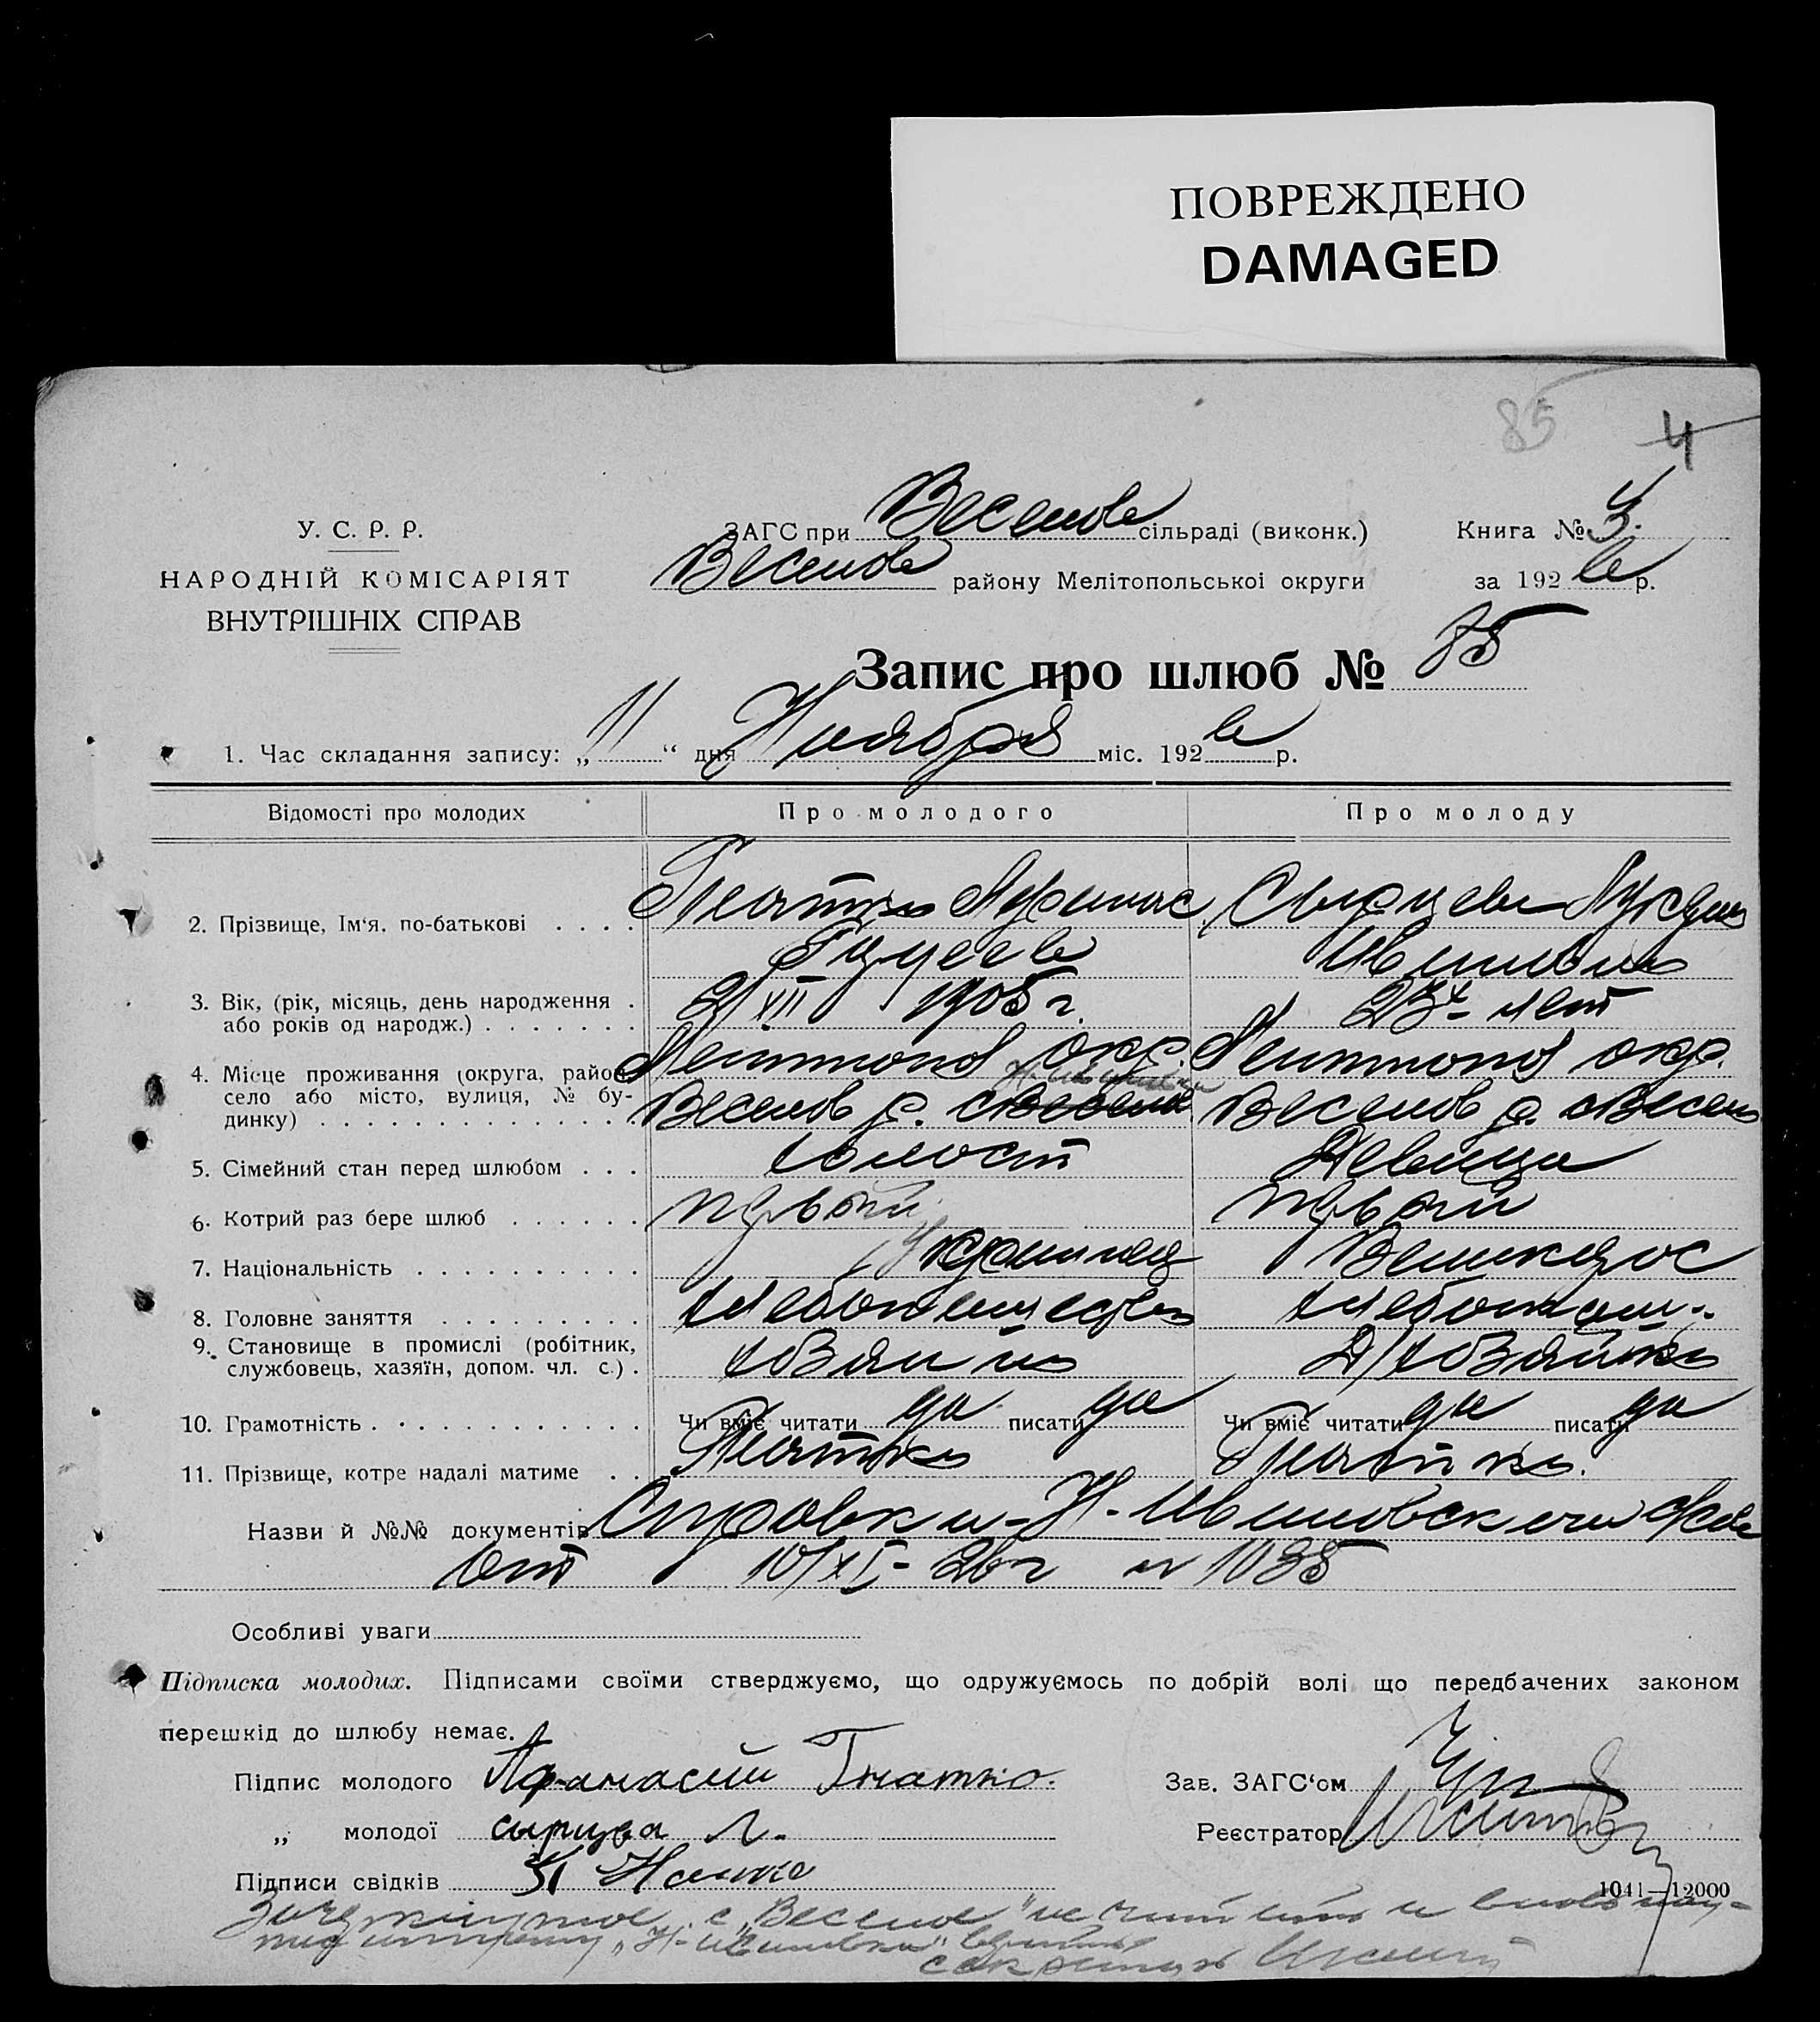 ПОВРЕЖДЕНО
DAMAGED
85 4
У. С. Р. Р.
НАРОДНІЙ КОМІСАРІЯТ
ВНУТРІШНІХ СПРАВ
ЗАГС при Веселов сільраді (виконк.)
Веселов району Мелітопольської округи
Книга №
за 192 6 р.
Запис про шлюб № 85
1. Час складання запису: „ 11 “ дня Ноября міс. 192 6 р.
Відомості про молодих Про молодого Про молоду
2. Прізвище, Ім'я, по-батькові . . . . Гнатко Афанас Сырцева
3. Вік, (рік, місяць, день народження .
або років од народж.) . . . . . . . 2/XII 1905 г. 23 лет
4. Місце проживання (округа, район, Мелитопол окр. Мелитопол окр.
село або місто, вулиця, № бу-
динку) . . . . . . . . . . . . . . Веселов р. с Веселое Веселов р. с Весело
5. Сімейний стан перед шлюбом . . . холост Девица
6. Котрий раз бере шлюб . . . . . . первый первый
7. Національність . . . . . . . . . . Украинец Великорос
8. Головне заняття . . . . . . . . .
9. Становище в промислі (робітник,
службовець, хазяїн, допом. чл. с.) . хозяин Д/хозяйка
10. Грамотність . . . . . . . . . . . Чи вміє читати да писати да Чи вміє читати да писати да
11. Прізвище, котре надалі матиме . . Гнатко Гнатко.
Назви й №№ документів Справки Н-Ивановской
от 10/XI-26 г № 1035
Особливі уваги
Підписка молодих. Підписами своїми стверджуємо, що одружуємось по добрій волі що передбачених законом
перешкід до шлюбу немає.
Підпис молодого Афанасий Гнатко.
Зав. ЗАГС'ом
„ молодої сырцева Л.
Реєстратор
Підписи свідків
1041—12000
Зачеркнутое с „Веселое" не читать и вновь
„Н-Ивановка" верить
секретарь